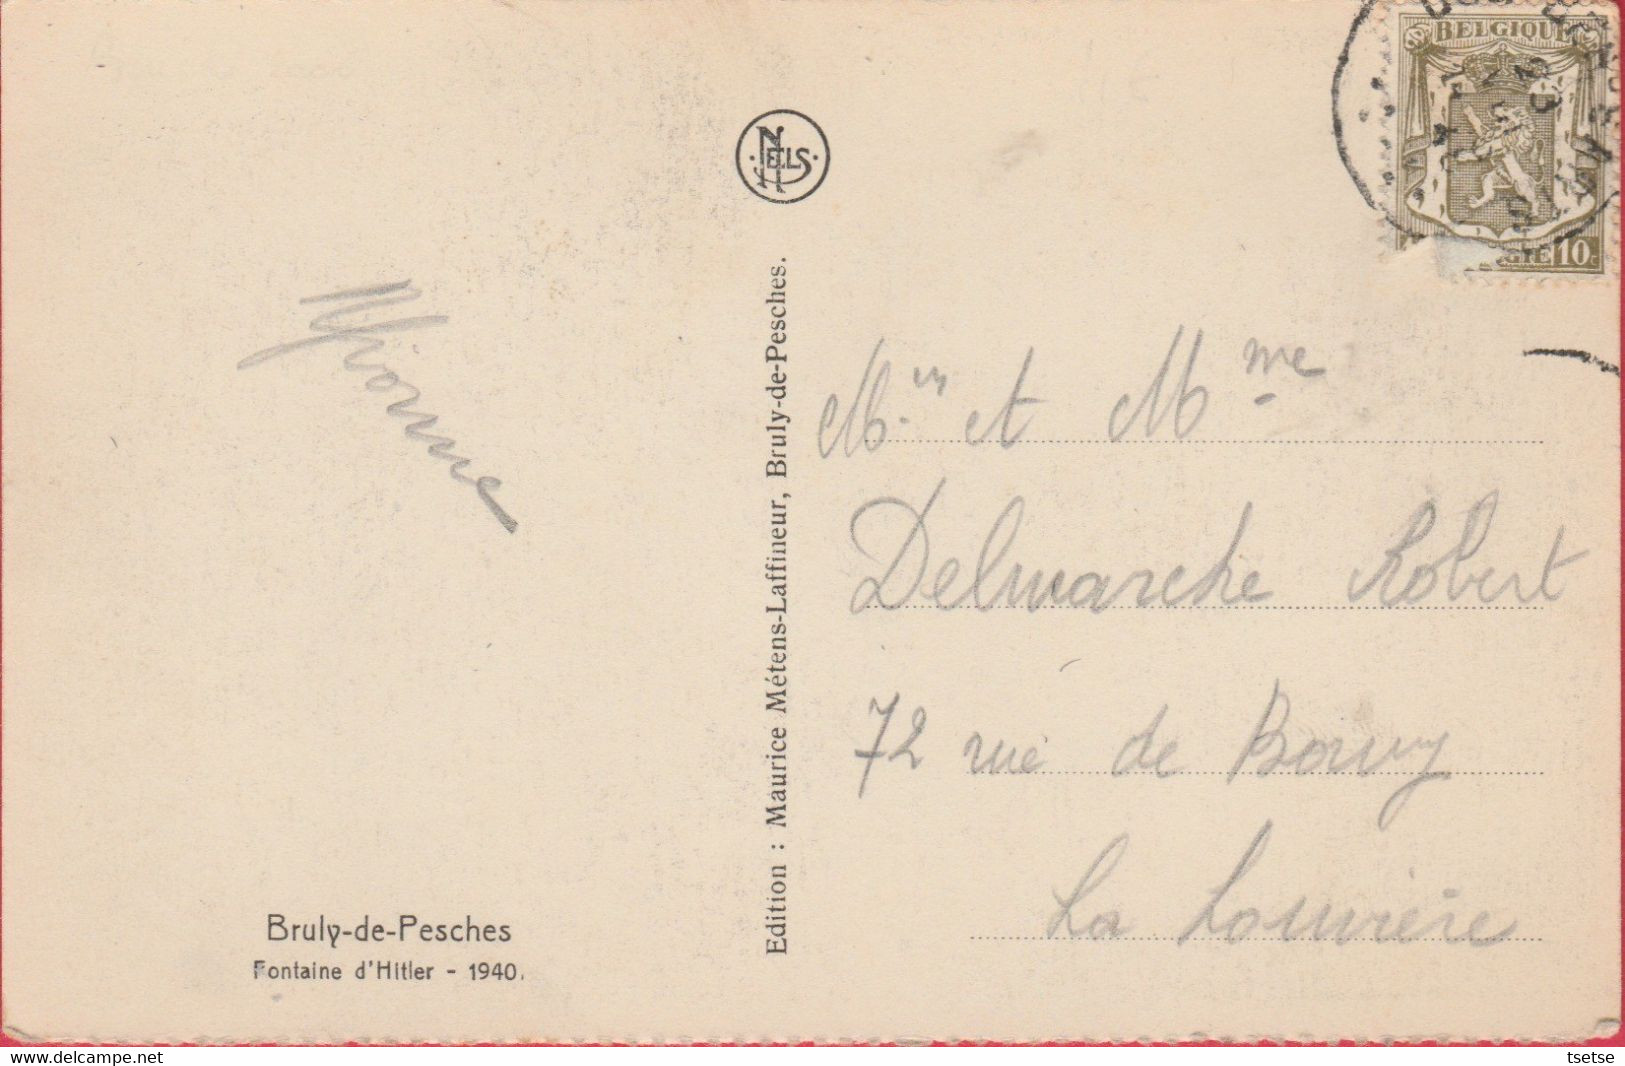 BELGIQUE
10c
NELS
Yvonne
Edition : Maurice Métens-Laffineur, Bruly-de-Pesches.
Mr et Mme
Delmarche Robert
72 rue de Bouvy
La Louvière
Bruly-de-Pesches
Fontaine d'Hitler - 1940.
www.delcampe.net
tsetse